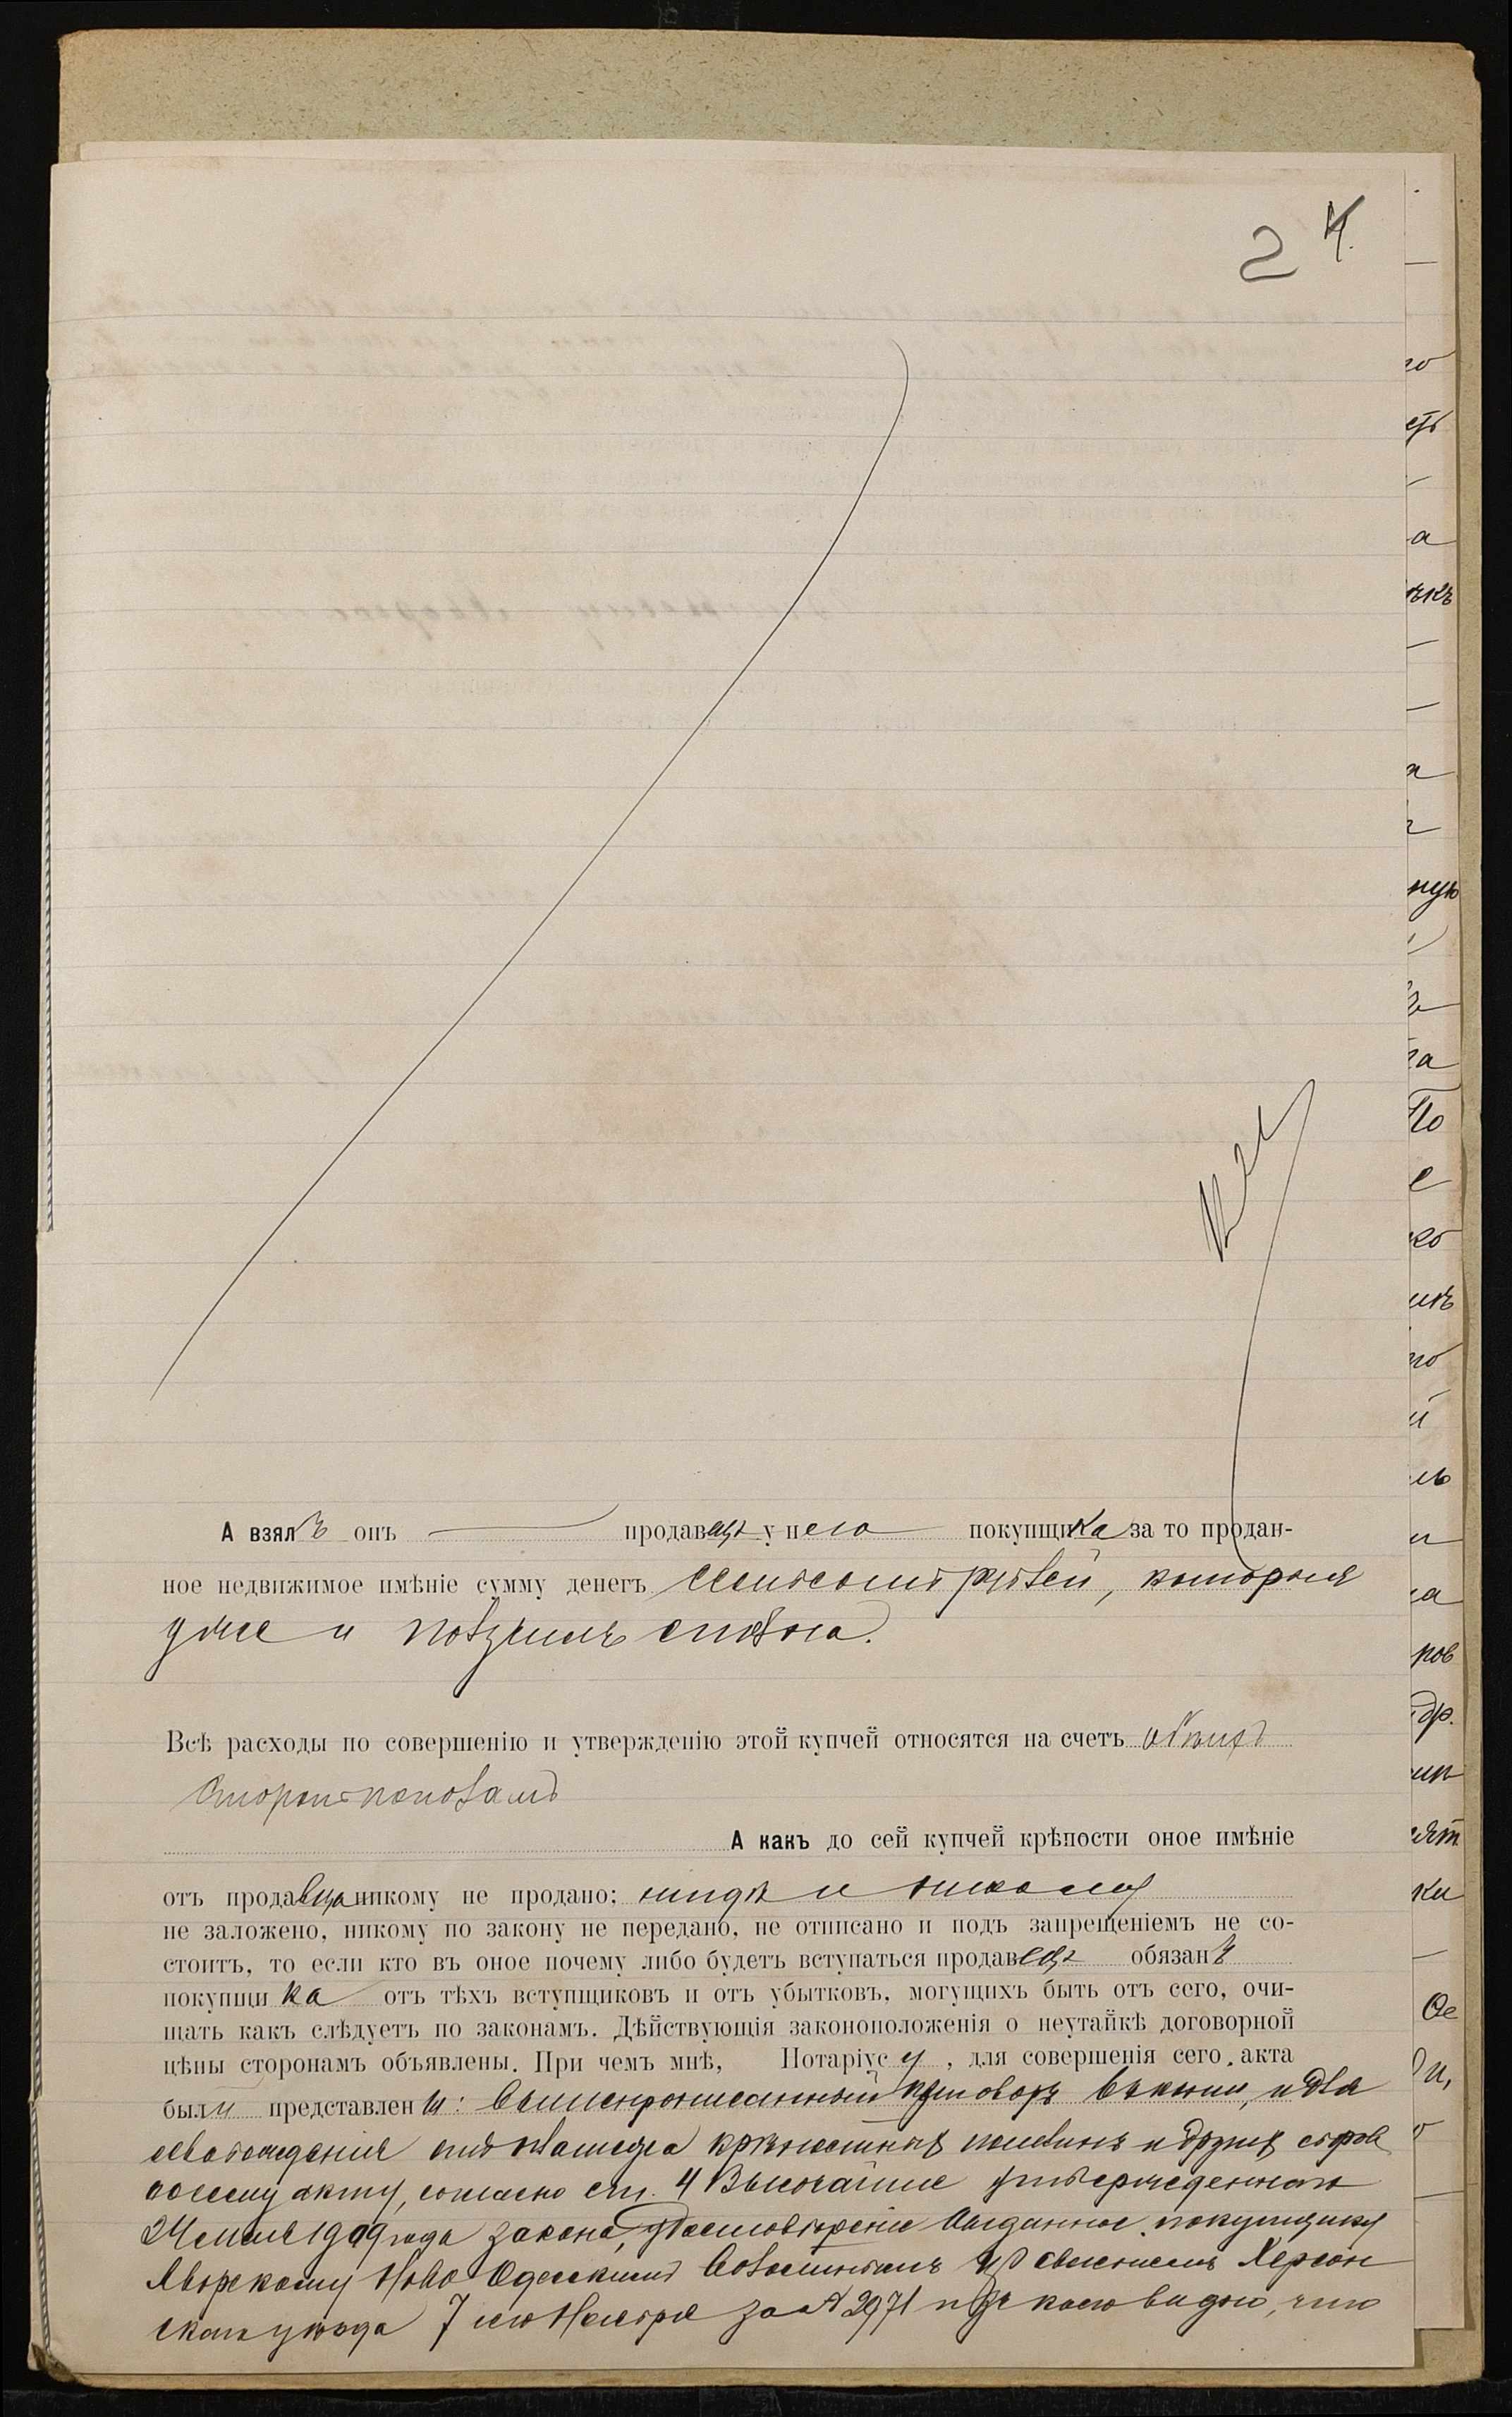 2 4.
А взялъ онъ продавецъ у него покупщика за то продан-
ное недвижимое имѣніе сумму денегъ рублей, которыя
уже и получилъ сполна.
Всѣ расходы по совершенію и утвержденію этой купчей относятся на счетъ обѣихъ
сторонъ пополамъ
А какъ до сей купчей крѣпости оное имѣніе
отъ продавца никому не продано; нигдѣ и никому
не заложено, никому по закону не передано, не отписано и подъ запрещеніемъ не со-
стоитъ, то если кто въ оное почему либо будетъ вступаться продавецъ обязанъ
покупщика отъ тѣхъ вступщиковъ и отъ убытковъ, могущихъ быть отъ сего, очи-
щать какъ слѣдуетъ по законамъ. Дѣйствующія законоположенія о неутайкѣ договорной
цѣны сторонамъ объявлены. При чемъ мнѣ, Нотаріусу, для совершенія сего акта
были представлены: вышепрописанный приговоръ выкопіи, и для
освобожденія отъ платежа крѣпостныхъ пошлинъ и другихъ сборовъ
по сему акту, согласно ст. 4 Высочайше утвержденнаго
24 1909 года закона, удостовѣреніе выданное покупщику
Яворскому Ново Одесскимъ Волостнымъ Правленіемъ Херсон
скаго уѣзда 7 сего Ноября за № 2971 изъ коего видно, что